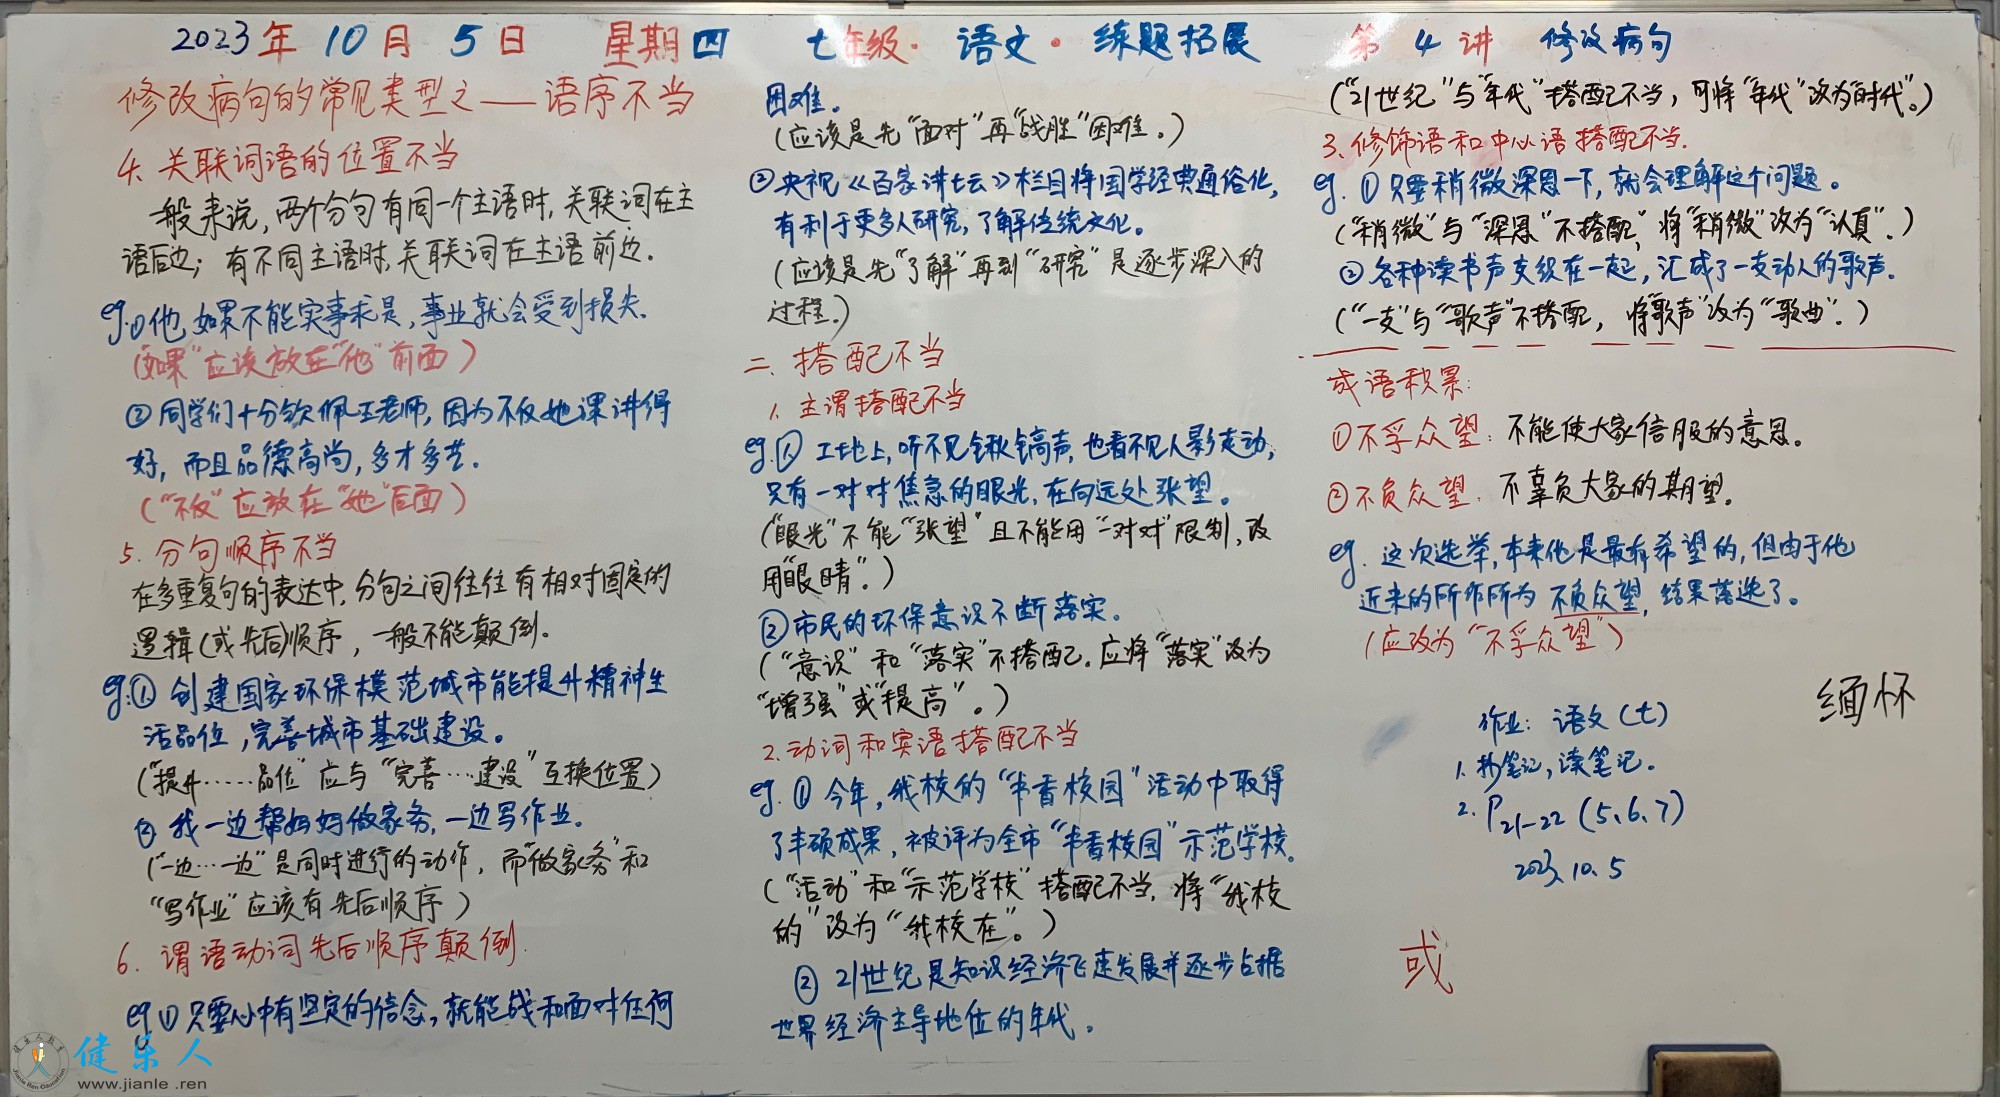 2023年 10月 5日 星期四 七年级·语文·练题拓展 第4讲 修改病句
修改病句的常见类型之——语序不当
4. 关联词语的位置不当
一般来说，两个分句有同一个主语时，关联词在主
语后边；有不同主语时，关联词在主语前边．
eg.①他如果不能实事求是，事业就会受到损失．
（“如果”应该放在“他”前面）
②同学们十分钦佩王老师，因为不仅她课讲得
好，而且品德高尚，多才多艺．
（“不仅”应放在“她”后面）
5. 分句顺序不当
在多重复句的表达中，分句之间往往有相对固定的
逻辑（或先后）顺序，一般不能颠倒．
eg:① 创建国家环保模范城市能提升精神生
活品位，完善城市基础建设。
（“提升……品位”应与“完善…建设”互换位置）
② 我一边帮妈妈做家务，一边写作业．
（“一边…一边”是同时进行的动作，而“做家务”和
“写作业”应该有先后顺序）
6. 谓语动词先后顺序颠倒．
eg①只要心中有坚定的信念，就能战和面对任何
困难．
（应该是先“面对”再“战胜”困难．）
②央视《百家讲坛》栏目将国学经典通俗化，
有利于更多人研究，了解传统文化。
（应该是先“了解”再到“研究”是逐步深入的
过程．）
二、搭配不当
1. 主谓搭配不当
eg.①．工地上，听不见锹镐声，也看不见人影走动，
只有一对对焦急的眼光，在向远处张望。
（“眼光”不能“张望”且不能用“一对对”限制，改
用“眼睛”．）
②市民的环保意识不断落实．
（“意识”和“落实”不搭配．应将“落实”改为
“增强”或“提高”。）
2. 动词和宾语搭配不当
eg. ① 今年，我校的“书香校园”活动中取得
了丰硕成果，被评为全市“书香校园”示范学校．
（“活动”和“示范学校”搭配不当，将“我校
的”改为“我校在”。）
② 21世纪是知识经济飞速发展并逐步占据
世界经济主导地位的年代．
（“21世纪”与“年代”搭配不当，可将“年代”改为“时代”。）
3. 修饰语和中心语搭配不当．
eg. ①只要稍微深思一下，就会理解这个问题．
（“稍微”与“深思”不搭配，将“稍微”改为“认真”．）
② 各种读书声交织在一起，汇成了一支动人的歌声．
（“一支”与“歌声”不搭配，将“歌声”改为“歌曲”．）
成语积累：
①不孚众望：不能使大家信服的意思。
②不负众望：不辜负大家的期望。
eg. 这次选举，本来他是最有希望的，但由于他
近来的所作所为不负众望，结果落选了。
（应改为“不孚众望”）
缅怀
作业：语文（七）
1. 抄笔记，读笔记．
2. P21—22（5、6、7）
2023.10.5
或
健乐人
www.jianle.ren